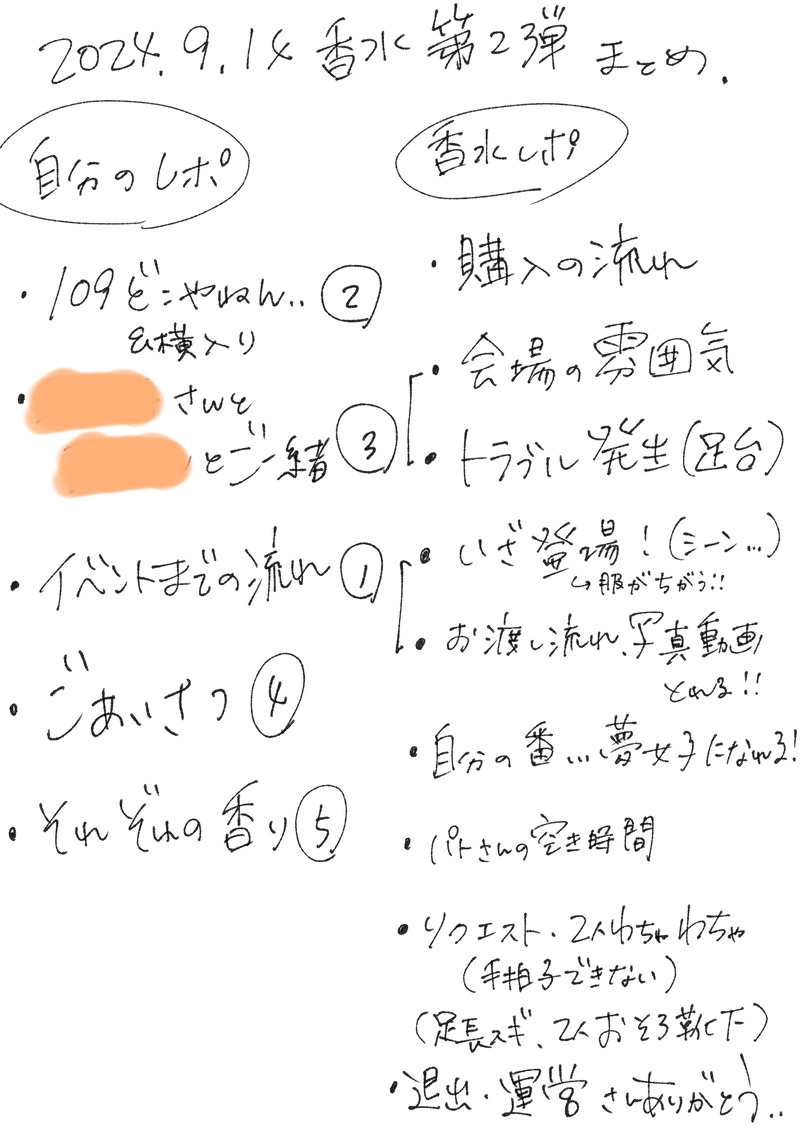 2024.9.14 香水 第2弾 まとめ.
自分のレポ
・109どこやねん.. ②
&横入り
・ さんと
とご一緒 ③
・イベントまでの流れ ①
・ごあいさつ ④
・それぞれの香り ⑤
香水レポ
・購入の流れ
・会場の雰囲気
・トラブル発生(足台)
・いざ登場!(シーン...)
↳服がちがう!!
・お渡し流れ、写真動画
とれる!!
・自分の番...夢女子になれる!
・パトさんの空き時間
・リクエスト・2人わちゃわちゃ
(手拍子できない)
(足長スギ、2人おそろ靴下)
・退出・運営さんありがとう..